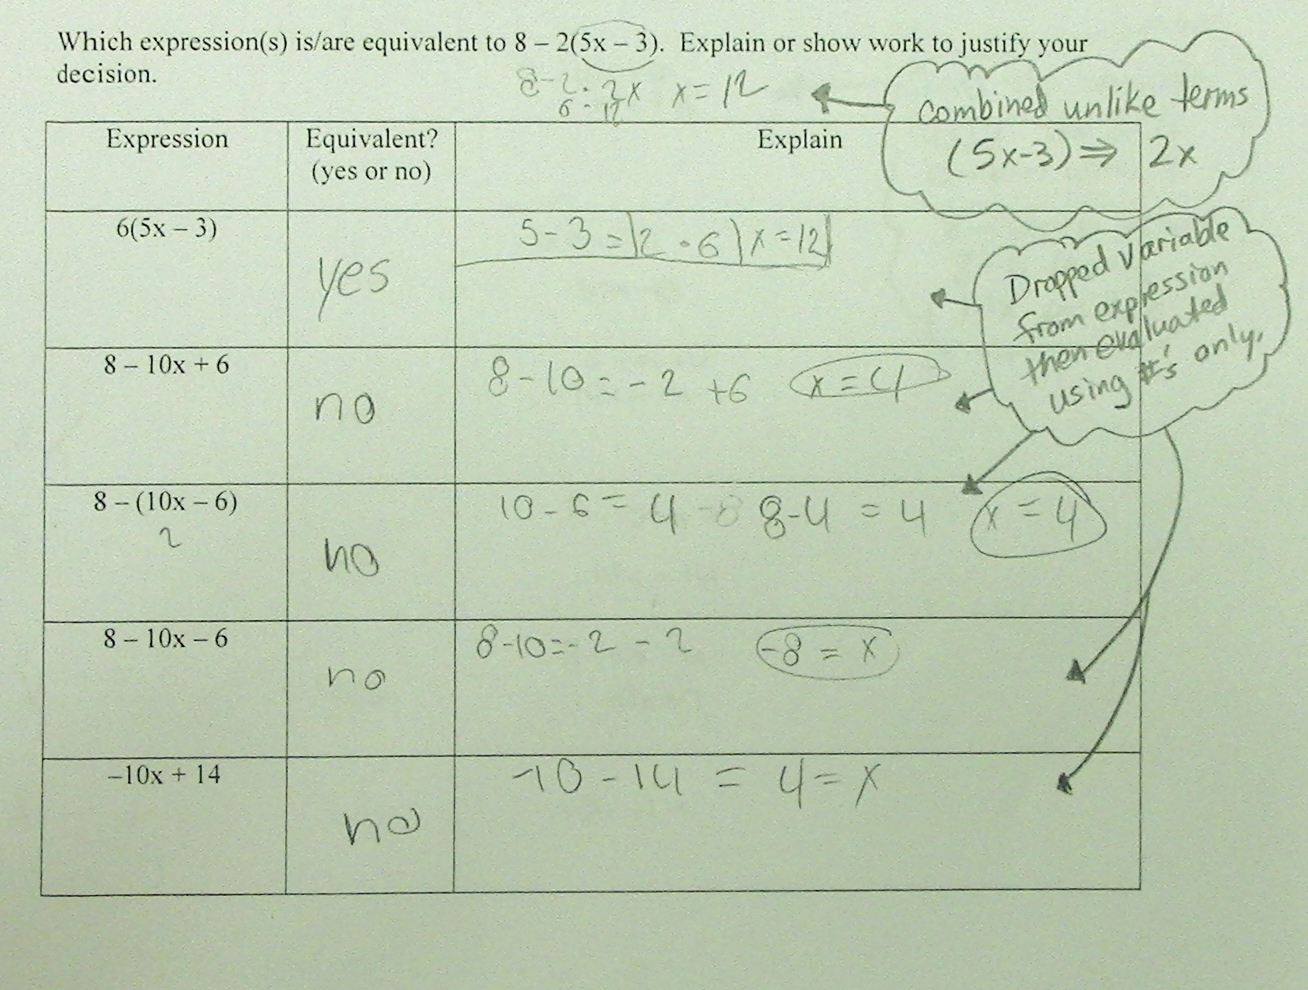 Which expression(s) is/are equivalent to 8 – 2(5x – 3). Explain or show work to justify your
decision.
8 - 2 · 2x x = 12
6 - 12
combined unlike terms
(5x-3) ⇒ 2x
Expression Equivalent? (yes or no) Explain
6(5x – 3)
yes
5 - 3 = 2 · 6 x = 12
Dropped variable
from expression
then evaluated
using #'s only.
8 – 10x + 6
no
8 - 10 = - 2 + 6 x = 4
8 – (10x – 6)
2
no
10 - 6 = 4 8 - 4 = 4 x = 4
8 – 10x – 6
no
8 - 10 = - 2 - 2 -8 = x
–10x + 14
no
-10 - 14 = 4 = x